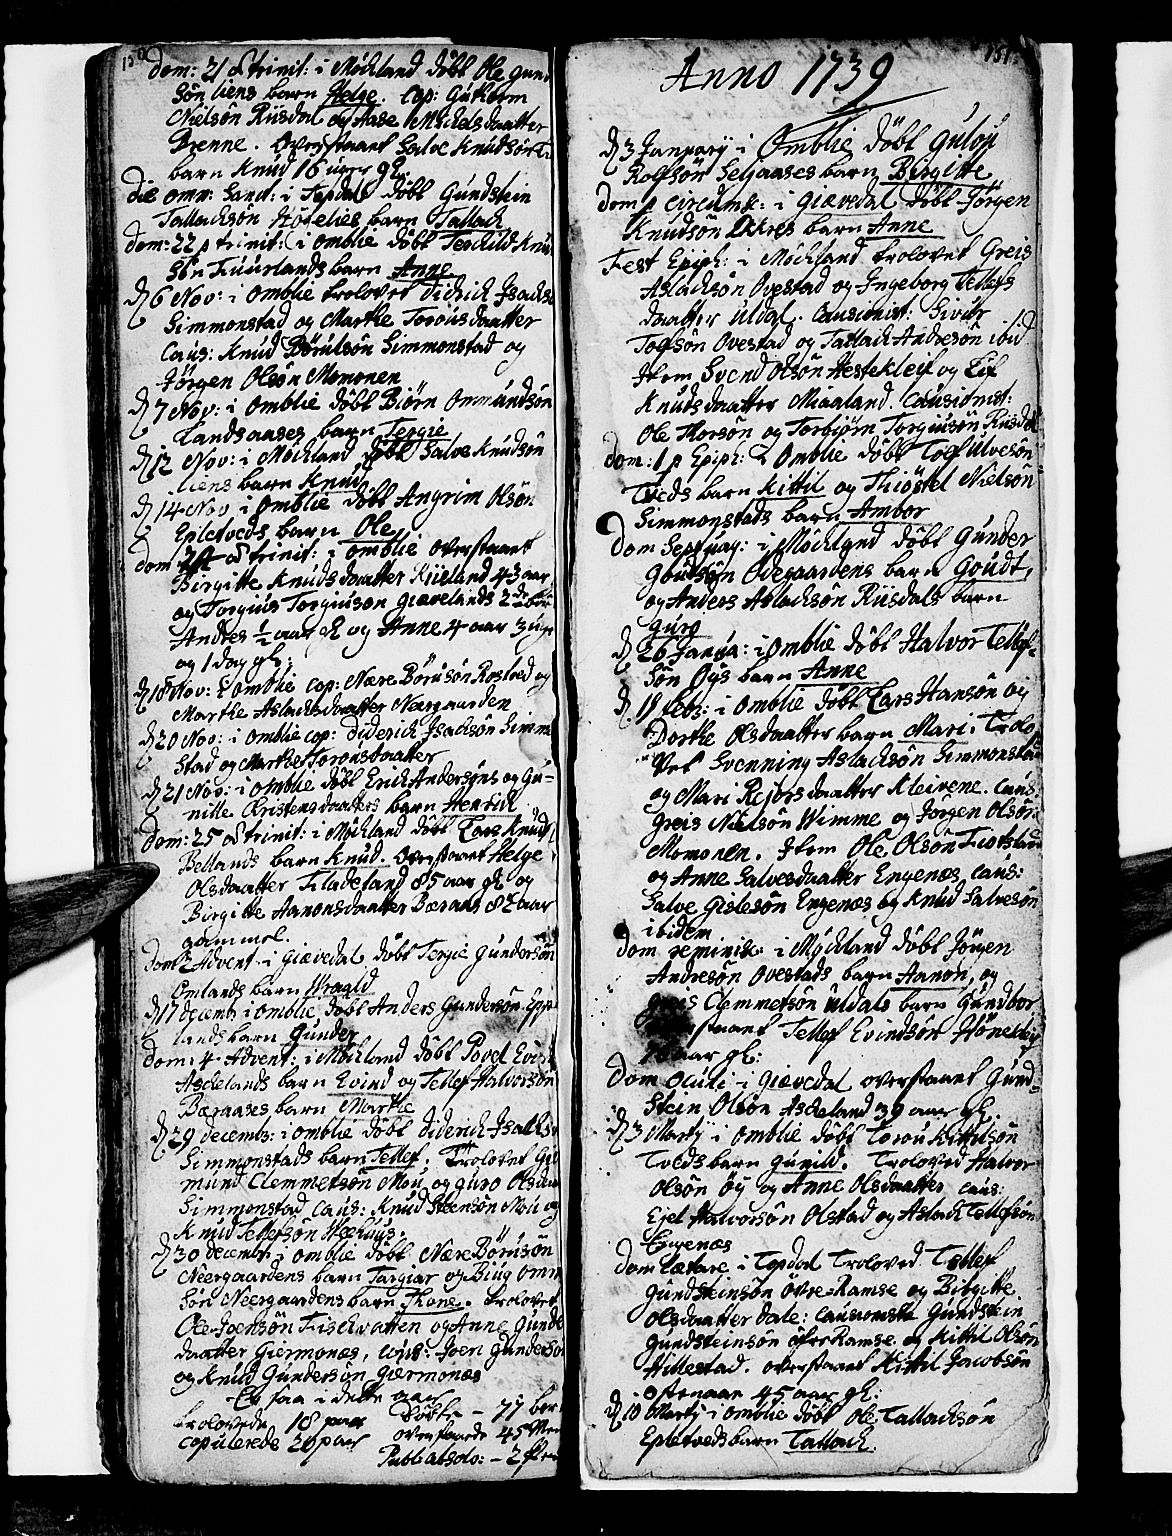 150
Dom: 21 p trinit: i Möchland döbt Ole Gund
Sön Liens barn Helge. Cop: Guthorm
Nielsön Riisdal og Aase Michelsdaatter
Grenne. Overstaaet Salve Knudsöns
barn Knud 16 uger gl.
Die omn: Sanct: i Topdal döbt Gundstein
Tallachsön Hodelies barn Tallach
Dom: 22 p trinit: i Omblie döbt Terchild Knud
Sön Fuurlands barn Anne
D 6 Nov: i Omblie trolovet Didrich Isachs
Simmonstad og Marthe Torousdaatter
Caus: Knud Börulsön Simmonstad og
Jörgen Olsön Momonen
D 7 Nov: i Omblie döbt Biörn Ommundsön
Landsaases barn Tergie
D 12 Nov: i Möchland döbt Salve Knudsön
Liens barn Knud
D 14 Nov i Omblie döbt Angrim Olsön
Epletveds barn Ole
Dom 24 p trinit: i Omblie overstaaet
Birgitte Knudsdaatter Kiieland 43 aar
og Torgius Torgiusön Giævelands 2de bör
Andres ½ aar gl og Anne 4 aar 3 uge
og 1 dag gl:
D 18 Nov: i Omblie cop: Nære Börusön Rostved og
Marthe Aslachsdaatter Næergaarden
D 20 Nov: i Omblie cop: Diderich Isachsön Simmon
Stad og Marthe Torousdaatter
D 21 Nov: i Omblie döbt Erich Andersöns og Gu=
nille Christensdaatters barn Henrich
Dom: 25 p trinit: i Möchland döbt Lars Knud
Betlands barn Knud. Overstaaet Helge
Olsdaatter Filadeland 85 aar gl og
Birgitte Aanonsdaatter Bæraas 82 aar
gammel.
Dom 2 Advent: i Giævedal döbt Tergie Gundersön
Omlands barn Wraald
D 17 decemb: i Omblie döbt Anders Gundersön Eppe
lands barn Gunder
Dom: 4 Advent: i Möchland döbt Povel Evind
Aschelands barn Evind og Tellef Halvorsön
Bæraases barn Marthe
D 29 decemb: i Omblie döbt Diderich Isachs
Simmonstads barn Tellef. Trolovet Gu
mund Clemmetsön Mou og Guro Olsdaa
Simmonstad Caus: Knud Steensön Mou og
Knud Tellefsön Wehuus.
D 30 decemb: i Omblie döbt Nære Börusön
Neergaardens barn Targiær og Biug Omm
Sön Neergaardens barn Thone. Trolovet
Ole Joensön Fischvatten og Anne Gunde
daatter Giermonæs, Caus: Joen Gundersö
og Knud Gundersön Giermonæs
Er saa i dette aar
trolovede 18 paar Döbte - 77 bör
Copulerede 20 paar overstaarde 45 Men
Publ: absolv: - 2 skr
151
Anno 1739
D 3 January i Omblie döbt Gulou
Rolfsön Selaases barn Birgitte
Dom p circums: i Giævedal döbt Jörgen
Knudsön Okres barn Anne
Fest Epiph: i Möchland trolovet Greis
Aslachsön Ovestad og Ingeborg Tellefs
daatter Uldal. Causionist: Sivur
Tofsön Ovestad og Tallach Andresön ibid
Item Svend Olsön Hestekleif og Lif
Knudsdaatter Miaaland. Causionist:
Ole Thorsön og Torbiörn Torgiusön Riisdal
Dom: 1 p Epiph: i Omblie döbt Tof Ulvesön
Tveds barn Kittil og Thiöstel Nielsön
Simmonstads barn Ambor
Dom Septuag: i Möchland döbt Gunder
Goudsön Odegaardens barn Goudt,
og Anders Aslachsön Riisdals barn
Guro
D 26 Janua: i Omblie döbt Halvor Tellef=
Sön Öys barn Anne
D 18 feb: i Omblie döbt Lars Hansön og
Dorthe Olsdaatter barn Mari. Trolo
Vet Svenning Aslachsön Simmonstad
og Mari Reiorsdaatter Kleivene. Caus:
Greis Nielsön Wimme og Jörgen Olsön
Momonen. Item Ole Olsön Fiotsland
og Anne Salvesdaatter Engenæs Caus:
Salve Gislesön Engenæs og Knud Salvesön
ibidem
Dom reminisc: i Möchland döbt Jörgen
Andresön Ovestads barn Aanon, og
Greis Clemmetsön Uldals barn Gundbor
Overstaaet Tellef Evindsön Höneklei
aar gl:
Dom Oculi i Giævedal overstaaet Gund=
Stein Olsön Ascheland 39 aar gl.
D 3 Martj i Omblie döbt Torou Kittilsön
Tveds barn Gunild. Troloved Halvor
Olsön Öy og Anne Olsdaatter Caus:
Ejel Halvorsön Olstad og Aslach Tellefsön
Engenæs
Dom Lætare i Topdal Troloved Tellef
Gundsteinsön Övre-Ramse og Birgitte
Olsdaatter Dale: Causioniste Gundstein
Gundsteinsön Öfre Ramse og Kittil Olsön
Hillestad. Overstaaet Kittil Jacobsön
Oftenaar 45 aar gl:
D 10 Martj i Omblie döbt Ole Tallachsön
Epletveds barn Tallach.